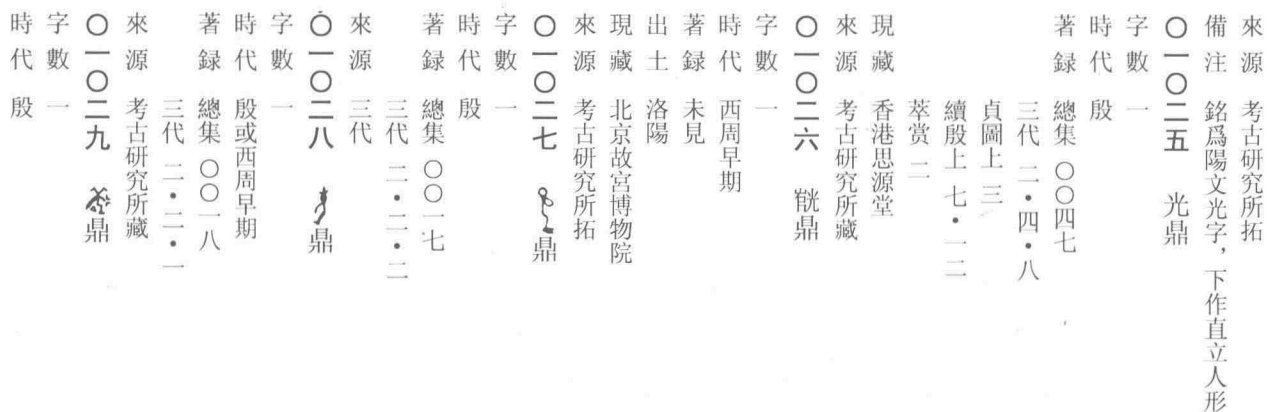 來源 考古研究所拓
備注 銘爲陽文光字，下作直立人形
〇一〇二五 光鼎
字數 一
時代 殷
著録 總集 〇〇四七
三代 二·四·八
貞圖上 三
續殷上 七·一二
萃赏 二
現藏 香港思源堂
來源 考古研究所藏
〇一〇二六 鼎
字數 一
時代 西周早期
著録 未見
出土 洛陽
現藏 北京故宮博物院
來源 考古研究所拓
〇一〇二七 鼎
字數 一
時代 殷
著録 總集 〇〇一七
三代 二·二·二
來源 三代
〇一〇二八 鼎
字數 一
時代 殷或西周早期
著録 總集 〇〇一八
三代 二·二·一
來源 考古研究所藏
〇一〇二九 鼎
字數 一
時代 殷